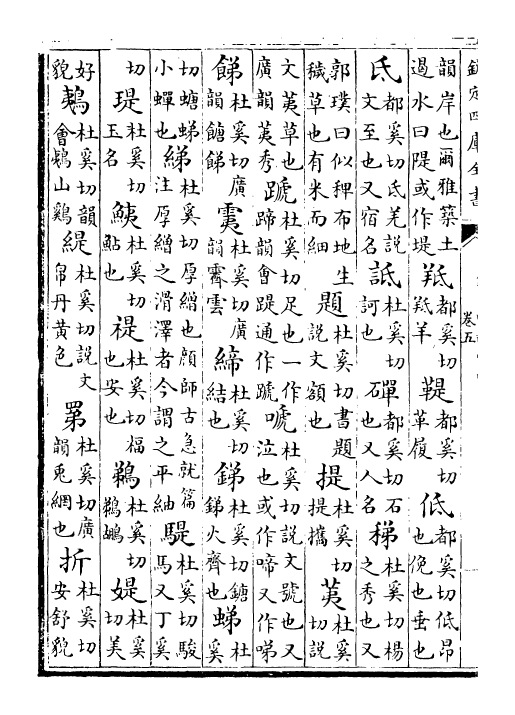 欽定四庫全書 卷五
韻岸也爾雅築土遏水曰隄或作堤 羝都奚切羝羊 鞮都奚切革履 低都奚切低昂也俛也垂也
氐都奚切氐羌說文至也又宿名 詆杜奚切訶也 磾都奚切石也又人名 稊杜奚切楊之秀也又
郭璞曰似稗布地生穢草也有米而細 題杜奚切書題說文額也 提杜奚切提攜 荑杜奚切說
文荑草也廣韻荑秀 蹏杜奚切足也一作蹄韻會踶通作蹏 嗁杜奚切說文號也又泣也或作啼又作㖒
䬾杜奚切廣韻餹䬾 杜奚切廣韻霽雲 締杜奚切結也 銻杜奚切鎕銻火齊也 䗖杜奚
切螗䗖小蟬也 綈杜奚切厚繒也顏師古急就篇注厚繒之滑澤者今謂之平紬 騠杜奚切駿馬又丁奚
切 瑅杜奚切玉名 鮧杜奚切鮎也 禔杜奚切福也安也 鵜杜奚切鵜鶘 媞杜奚切美
好貌 鴺杜奚切韻會鴺山鷄 緹杜奚切說文帛丹黃色 罤杜奚切廣韻兎網也 折杜奚切安舒貌